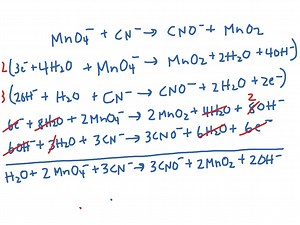 MnO₄⁻ + CN⁻ → CNO⁻ + MnO₂
2(3e⁻ + 4H₂O + MnO₄⁻ → MnO₂ + 2H₂O + 4OH⁻)
3(2OH⁻ + H₂O + CN⁻ → CNO⁻ + 2H₂O + 2e⁻)
2
6e⁻ + 8H₂O + 2MnO₄⁻ → 2MnO₂ + 4H₂O + 8OH⁻
6OH⁻ + 3H₂O + 3CN⁻ → 3CNO⁻ + 6H₂O + 6e⁻
H₂O + 2MnO₄⁻ + 3CN⁻ → 3CNO⁻ + 2MnO₂ + 2OH⁻